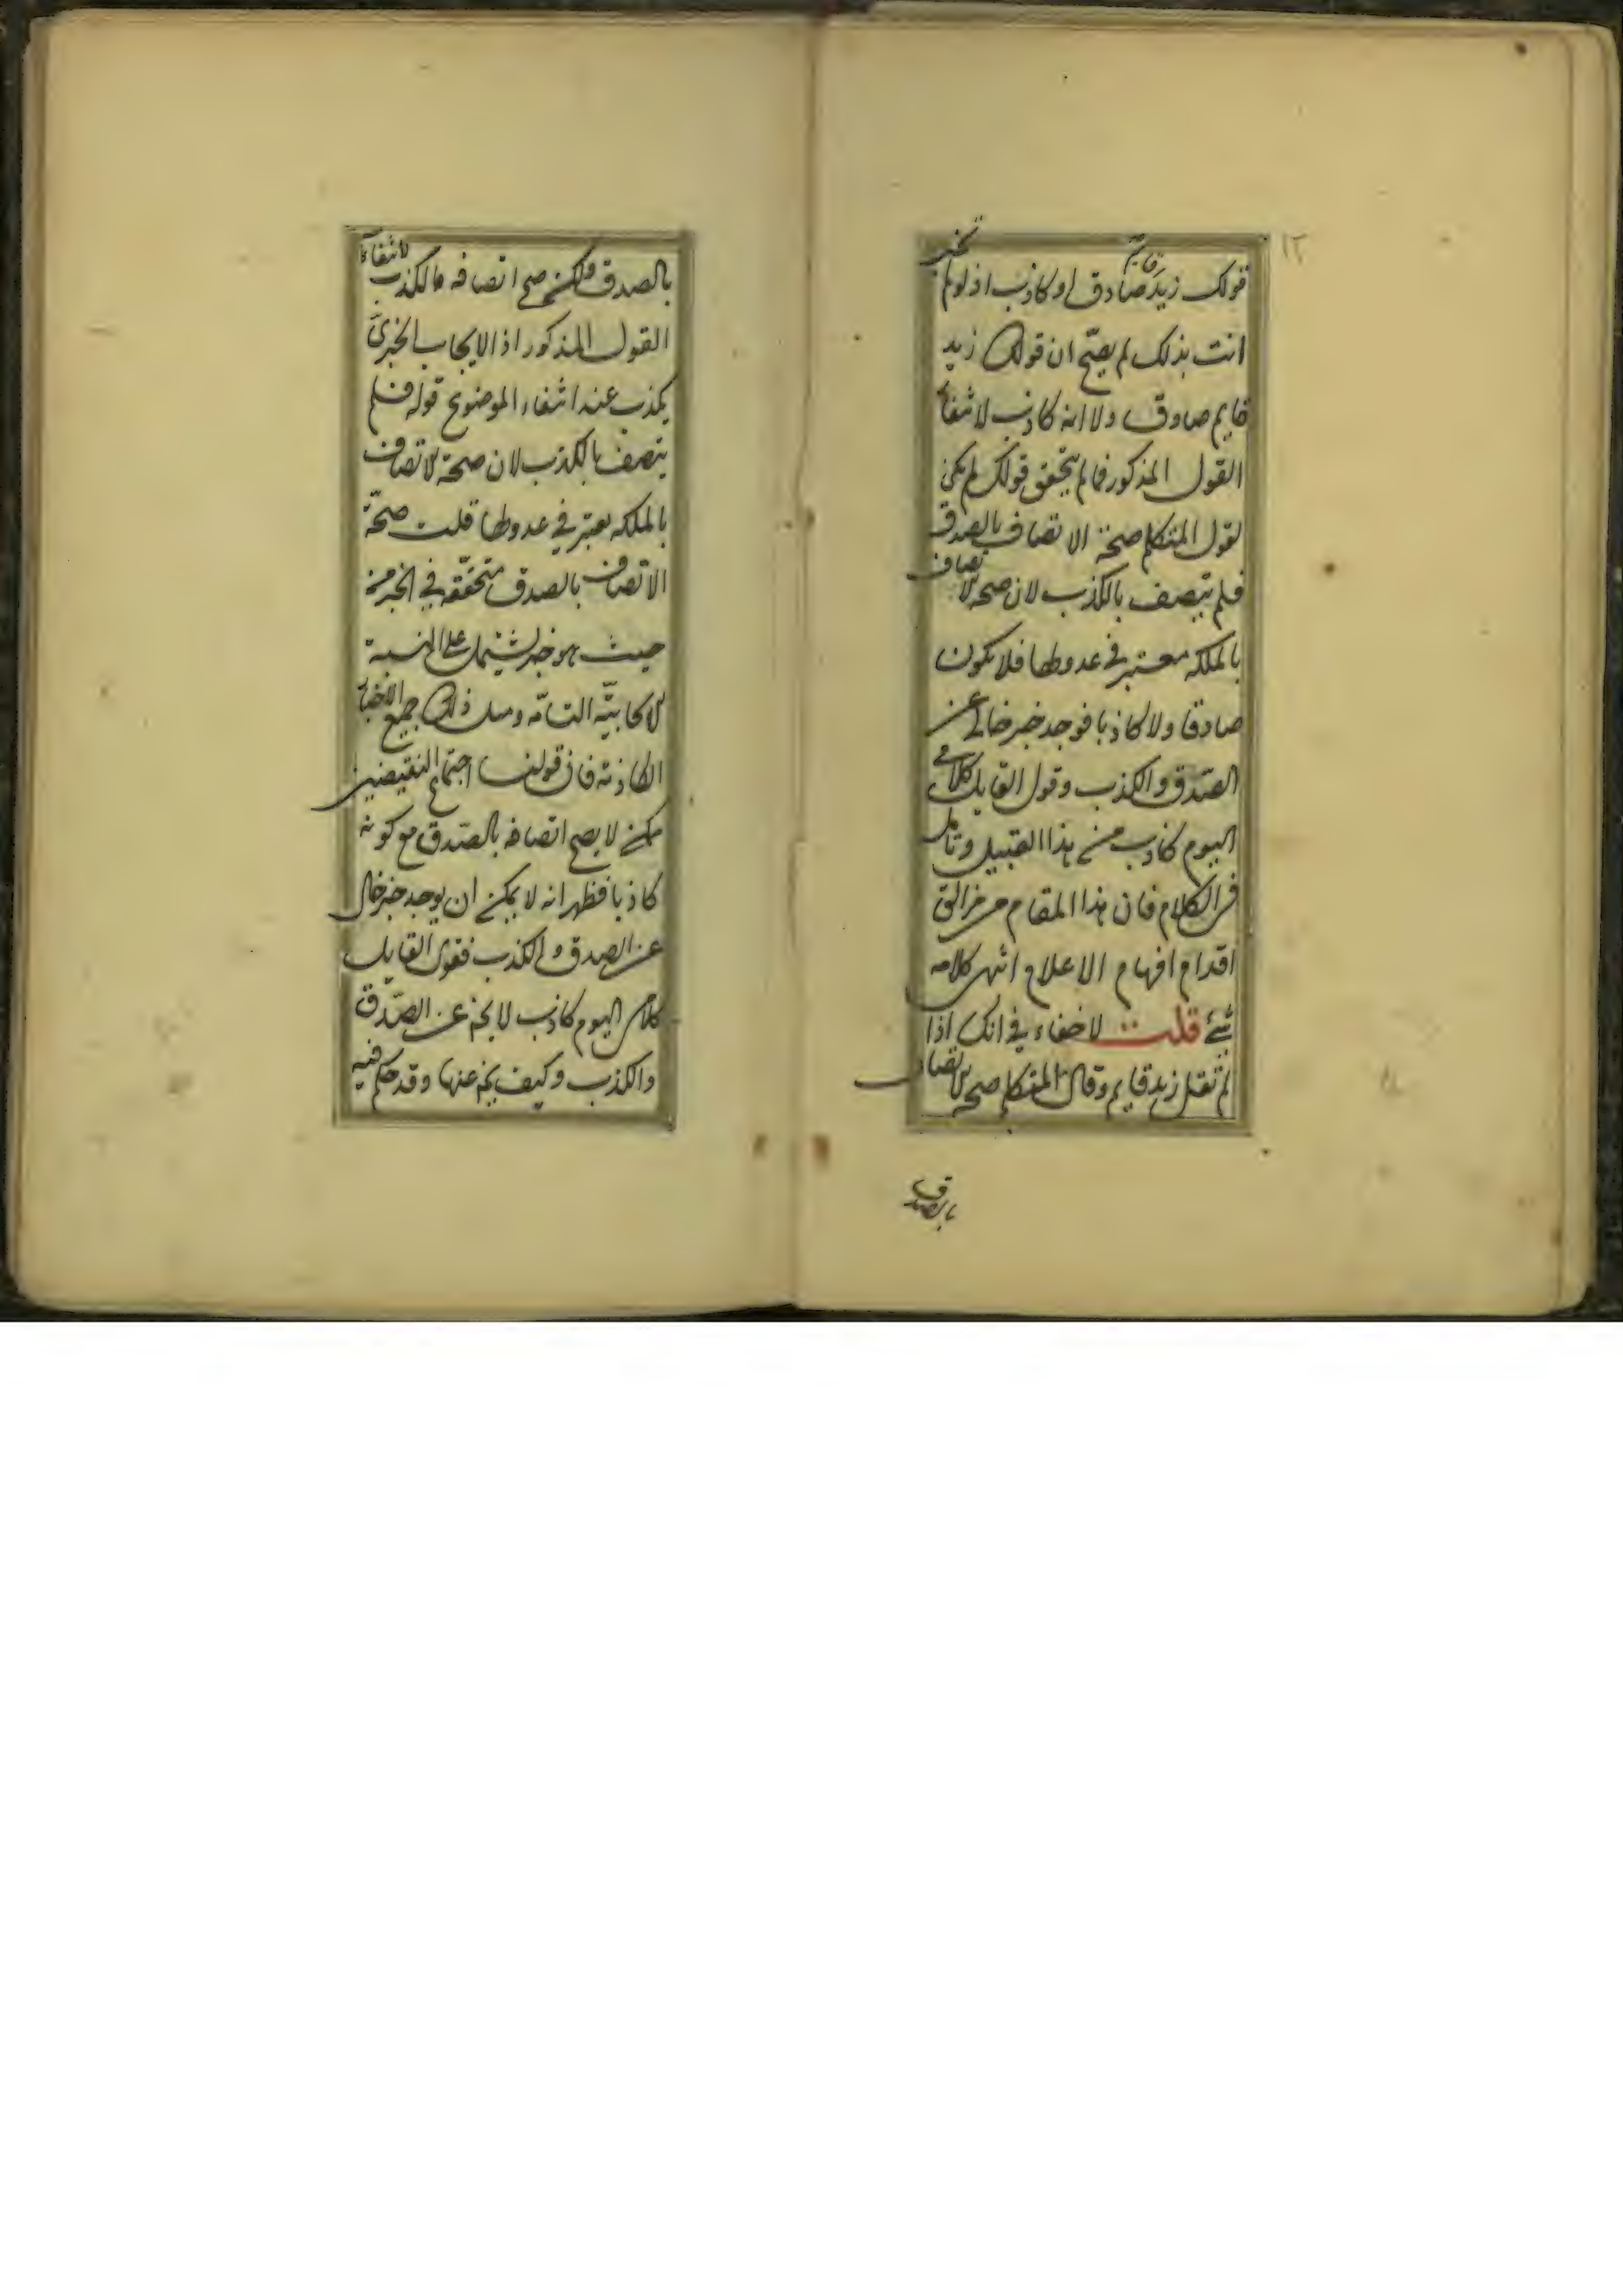 ١٢
قولك زيد قايم صادق او كاذب اذ لو لم تخبر
انت بذلك لم يصحّ ان قولك زيد
قايم صادق ولا انه كاذب لانتفاء
القول المذكور فما لم يتحقق قولك لم يكن
لقول المتكلم صحة الاتصاف بالصدق
فلم يتصف بالكذب لان صحة الاتصاف
بالملكه معتبر فى عدولها فلا يكون
صادقا ولا كاذبا فوجد خبر خالى عن
الصّدق والكذب وقول القايل كلامى
اليوم كاذب من هذا القبيل وتامل
فى الكلام فان هذا المقام من مزالق
اقدام افهام الاعلام انتهى كلامه
قلت لا خفاء فى انك اذا
لم تقل زيد قايم وقال المتكلم صحة الاتصاف
بالصدق
بالصدق ولكن صح اتصافه بالكذب لانتفاء
القول المذكور اذ الايجاب الخبرىّ
يكذب عند انتفاء الموضوع قوله فلم
يتصف بالكذب لان صحة الاتصاف
بالملكه يعتبر فى عدولها قلت صحّة
الاتصاف بالصدق متحقّقه فى الخبر من
حيث هو خبر يشتمل على النسبة
الحكايتيّه التامّه ومثل ذلك جميع الاخبار
الكاذبه فان قولنا اجتماع النقيضين
ممكن لا يصح اتصافه بالصّدق مع كونه
كاذبا فظهر انه لا يمكن ان يوجد خبر خال
عن الصدق والكذب فقول القايل
كلامى اليوم كاذب لا يخ عن الصّدق
والكذب وكيف يخ عنها وقد حكم فيه